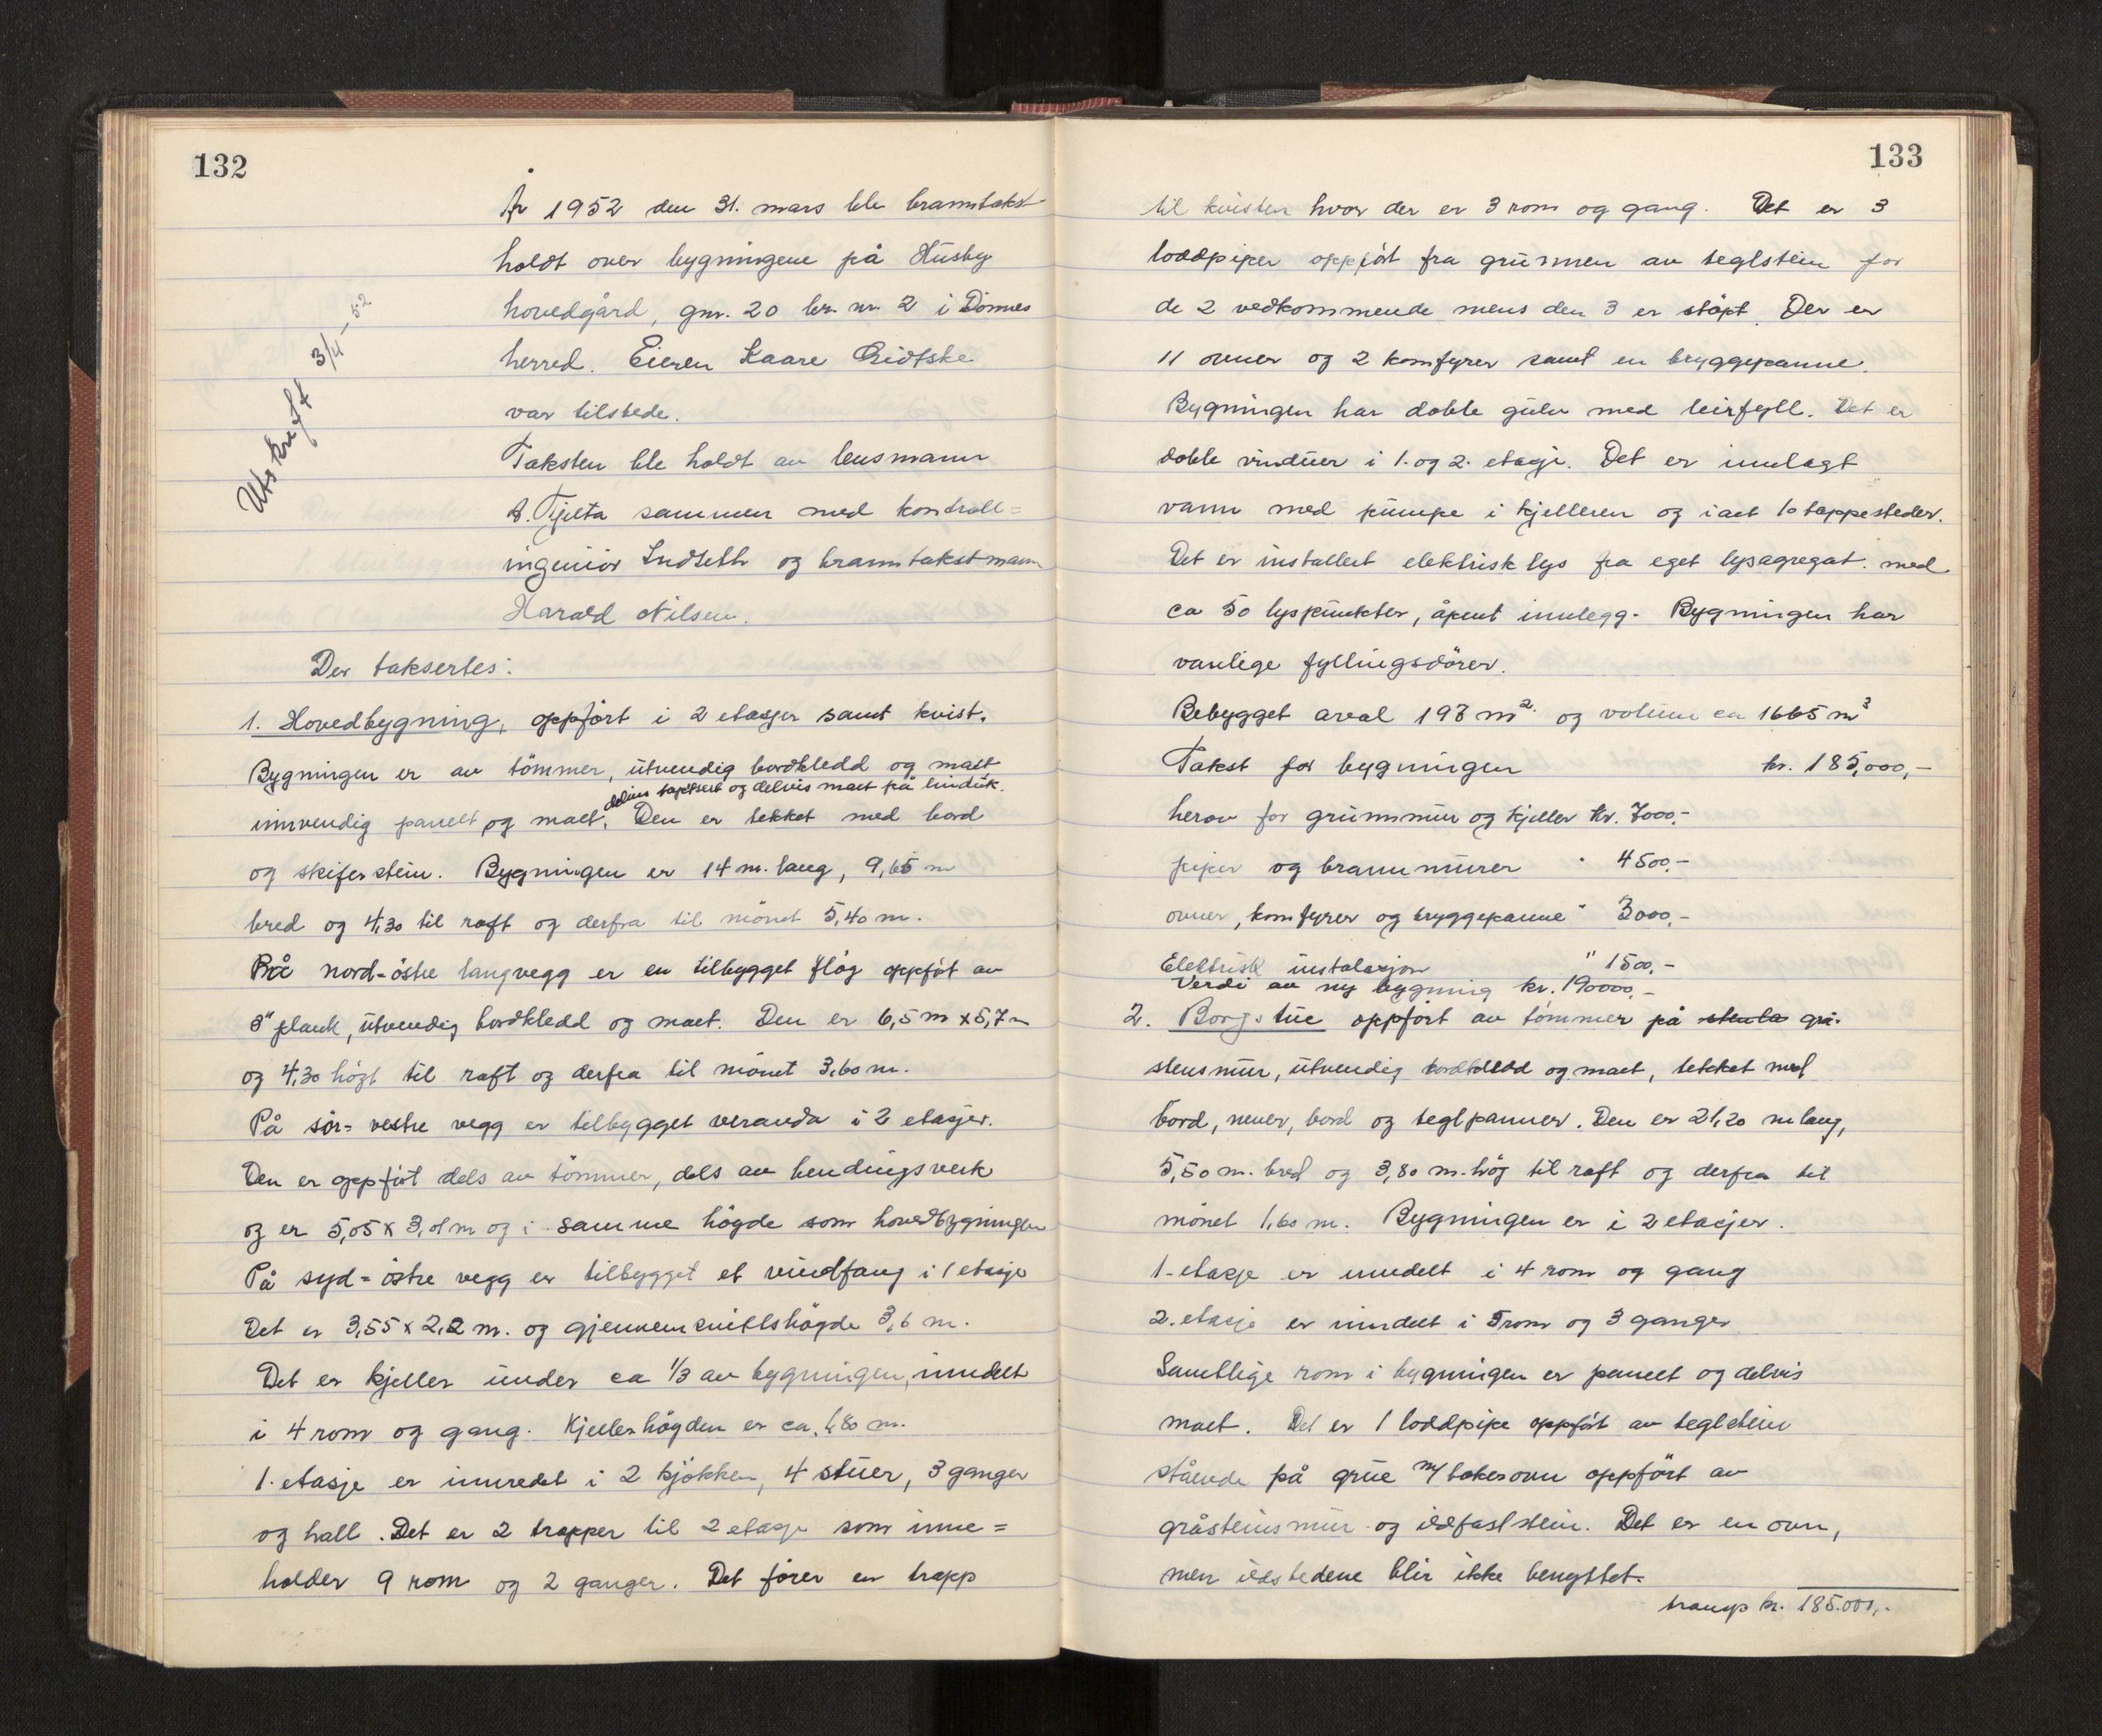 132
År 1952 den 31. mars ble branntakst
holdt over bygningene på Husby
hovedgård, gnr. 20 br. nr. 2 i Dönnes
herred. Eieren Kaare Coldevin
var tilstede.
Taksten ble holdt av lensmann
A. Tjelta sammen med kontroll=
ingeniör Indseth og branntakstmann
Harald Nilsen.
Utskrift 3/4-52
Der taksertes:
1. Hovedbygning, oppfört i 2 etasjer samt kvist.
Bygningen er av tömmer, utvendig bordkledd og malt
delvis tapetsert og delvis malt på linduk.
innvendig panelt og malt. Den er tekket med bord
og skiferstein. Bygningen er 14 m. lang, 9,65 m
bred og 4,30 til raft og derfra til mönet 5,40 m.
På nord-östre langvegg er en tilbygget flög oppfört av
3" plank, utvendig bordkledd og malt. Den er 6,5 m x 5,7 m
og 4,30 högt til raft og derfra til mönet 3,60 m.
På sör= vestre vegg er tilbygget veranda i 2 etasjer.
Den er oppfört dels av tömmer, dels av bendingsverk
og er 5,05 x 3,01 m og i samme högde som hovedbygningen
På syd=östre vegg er tilbygget et vindfang i 1 etasje
Det er 3,55 x 2,2 m. og gjennemsnittshögde 3,6 m.
Det er kjeller under ca 1/3 av bygningen, inndelt
i 4 rom og gang. Kjellerhögden er ca. 1,80 m.
1. etasje er innredet i 2 kjökken, 4 stuer, 3 ganger
og hall. Det er 2 trapper til 2 etasje som inne=
holder 9 rom og 2 ganger. Det förer en trapp
133
til kvisten hvor der er 3 rom og gang. Det er 3
loddpiper oppfört fra grunnen av teglstein for
de 2 vedkommende mens den 3 er stöpt. Der er
11 ovner og 2 komfyrer samt en bryggepanne.
Bygningen har doble gulv med leirfyll. Det er
doble vinduer i 1. og 2. etasje. Det er innlagt
vann med pumpe i kjelleren og i alt 10 tappesteder.
Det er installert elektrisk lys fra eget lysagregat. med
ca 50 lyspunkter, åpent innlegg. Bygningen har
vanlige fyllingsdörer.
Bebygget areal 193 m² og volum ca 1665 m³
Takst for bygningen kr. 185,000,-
herav for grunnmur og kjeller kr. 7000,-
piper og brannmurer " 4500,-
ovner, komfyrer og bryggepanne " 3000,-
Elektrisk instalasjon " 1500,-
Verdi av ny bygning kr. 190000,-
2. Borgstue oppfört av tömmer på grå-
stensmur, utvendig bordkledd og malt, tekket med
bord, never, bord og teglpanner. Den er 21,20 m lang,
5,50 m. bred og 3,80 m. hög til raft og derfra til
mönet 1,60 m. Bygningen er i 2 etasjer.
1. etasje er inndelt i 4 rom og gang
2. etasje er inndelt i 5 rom og 3 ganger
Samtlige rom i bygningen er panelt og delvis
malt. Det er 1 loddpipe oppfört av teglstein
stående på grue m/ bakerovn oppfört av
gråsteinsmur og ildfast stein. Det er en ovn,
men ildstedene blir ikke benyttet.
transp kr. 185.000,-